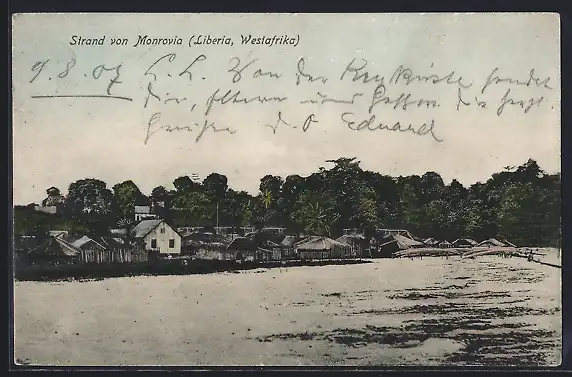 Strand von Monrovia (Liberia, Westafrika)
9.8.07 L. L. Von der sendet
dir, Eltern und die herzl
Grüsse d. O Eduard